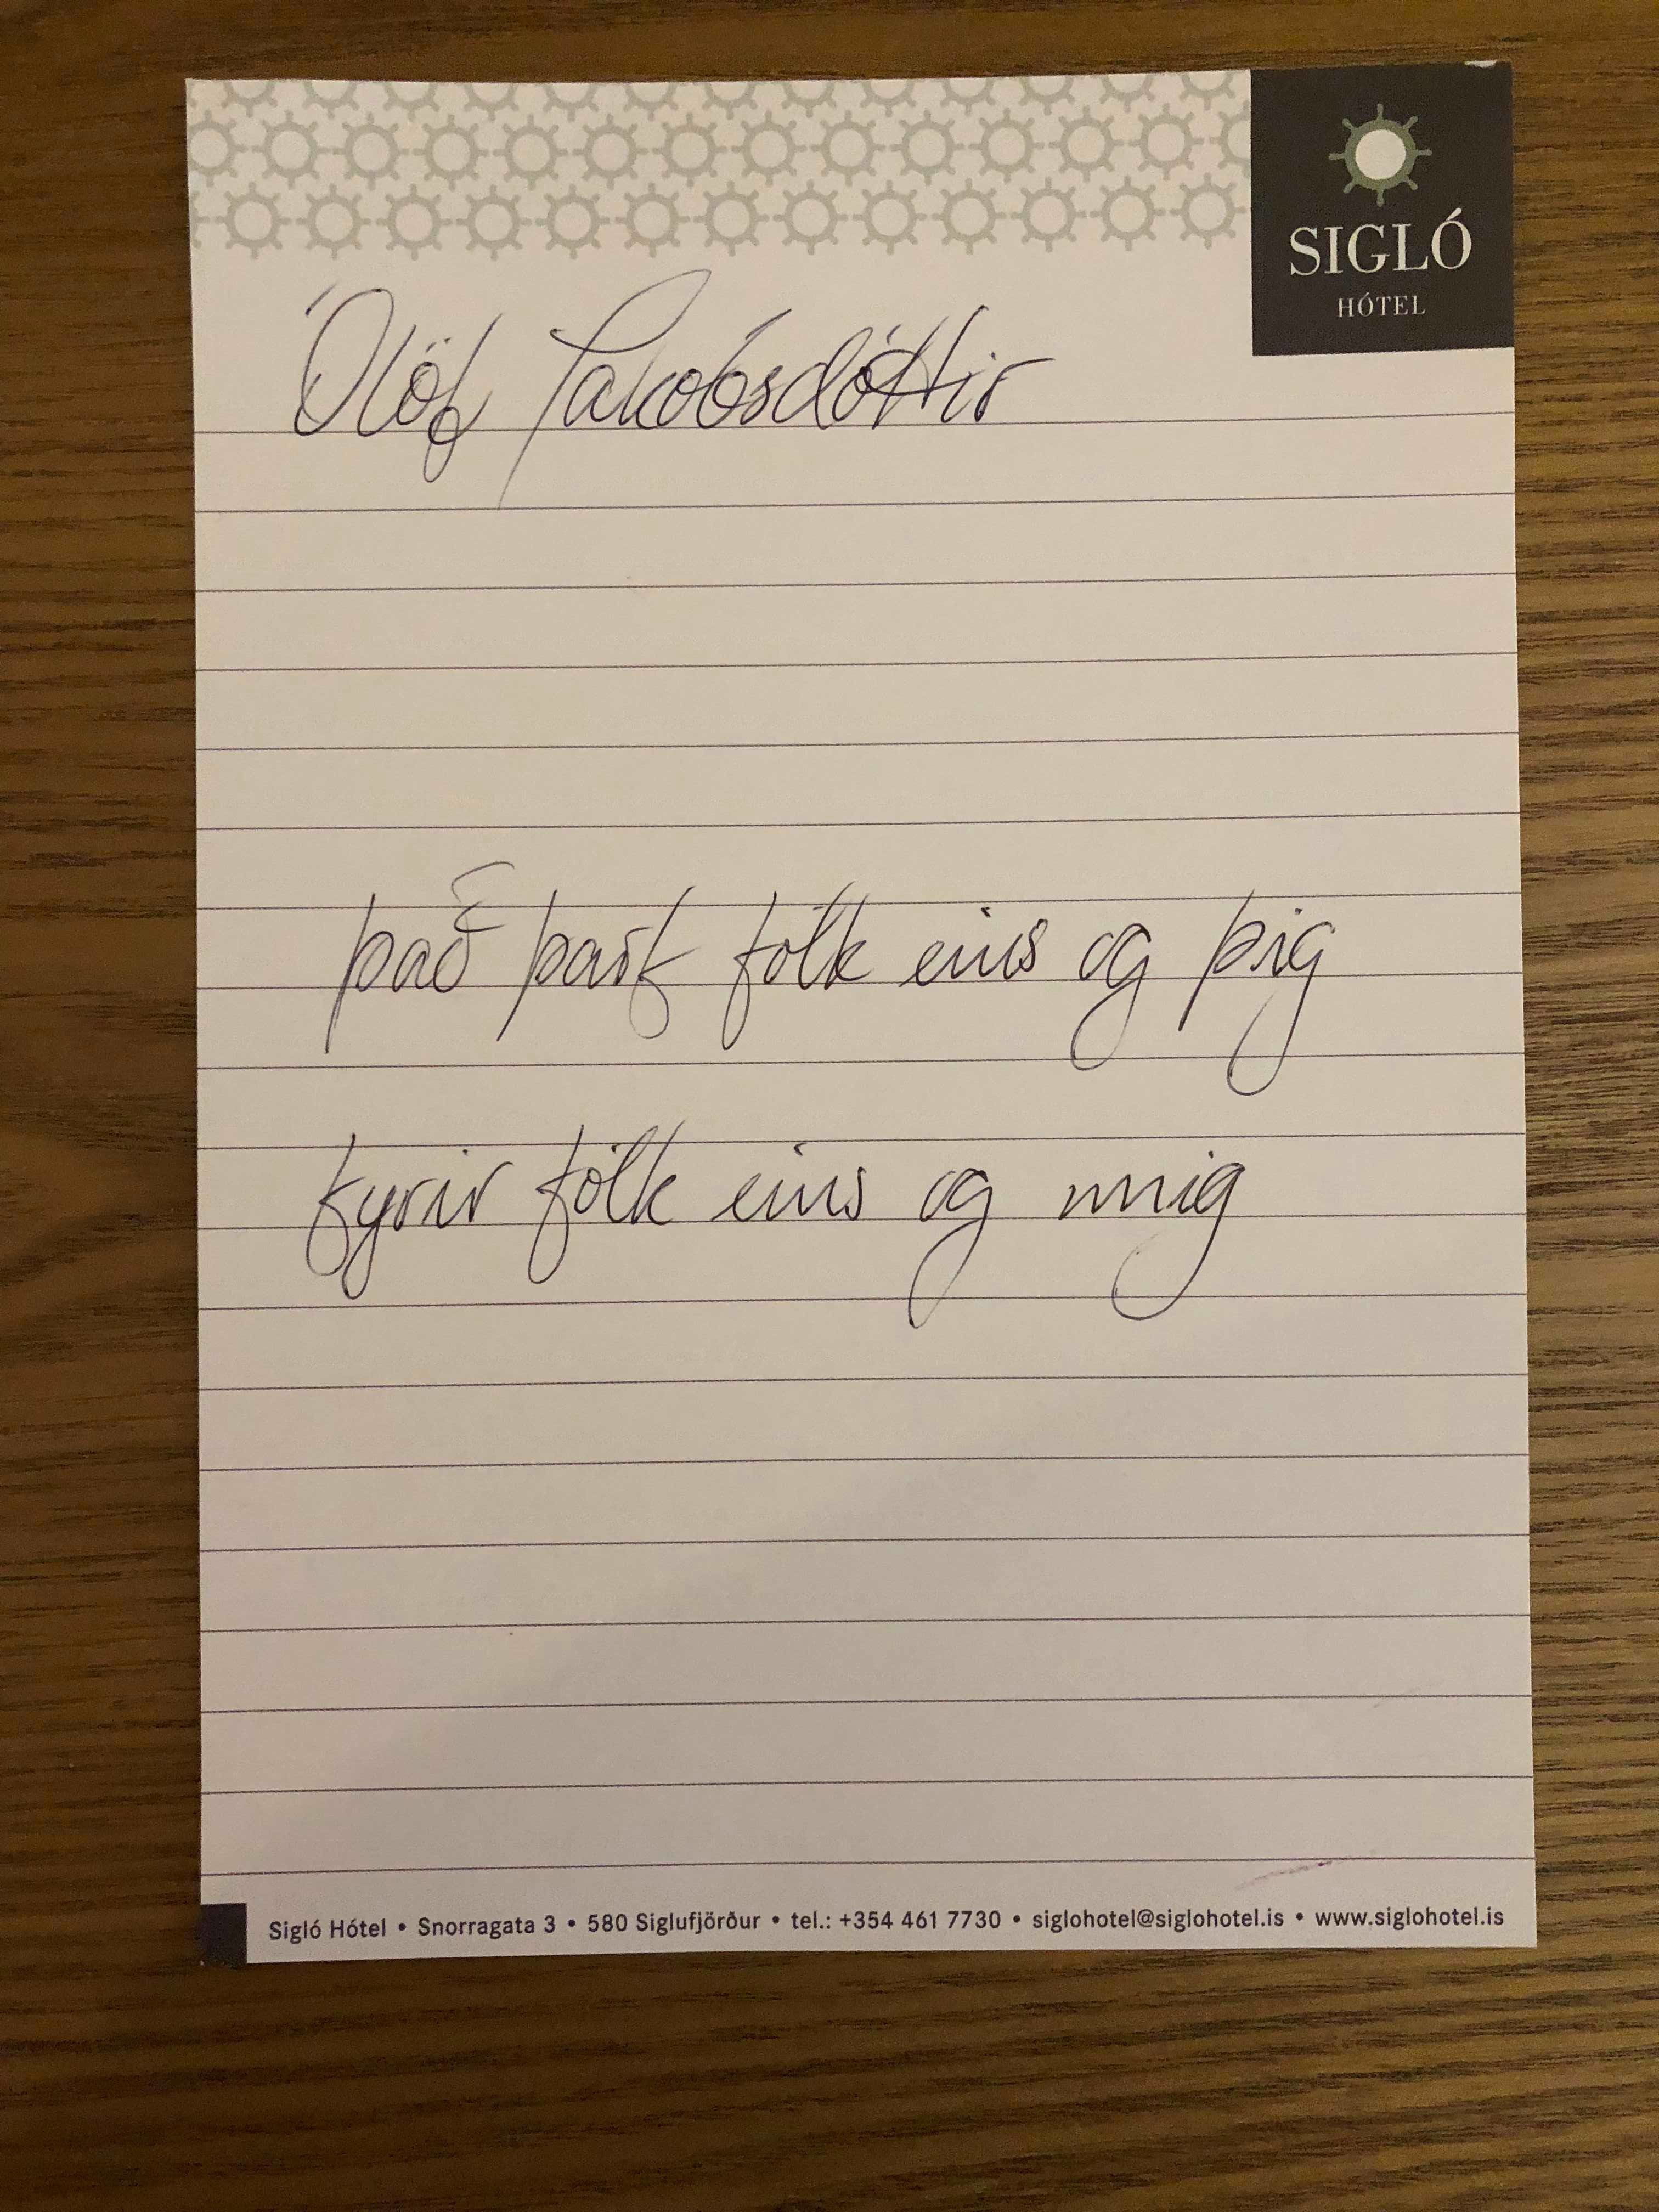 SIGLÓ
HÓTEL
Ólöf Jakobsdóttir
það þarf fólk eins og þig
fyrir fólk eins og mig
Sigló Hótel • Snorragata 3 • 580 Siglufjörður • tel.: +354 461 7730 • siglohotel@siglohotel.is • www.siglohotel.is